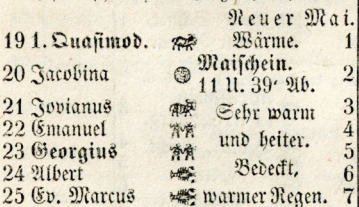 Neuer Mai.
19 1. Quasimod. Wärme. 1
20 Jacobina Maischein. 11 U. 39' Ab. 2
21 Jovianus Sehr warm 3
22 Emanuel und heiter. 4
23 Georgius 5
24 Albert Bedeckt, 6
25 Ev. Marcus warmer Regen. 7